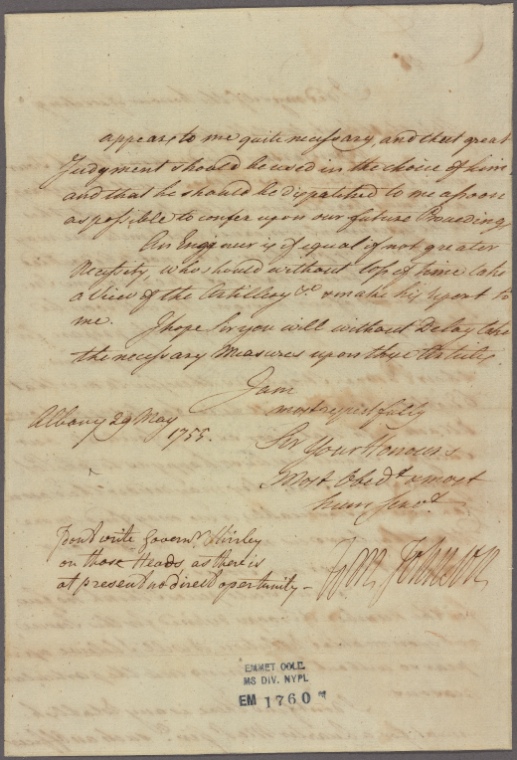 appears to me quite necessary, and that great
Judgment should be used in the choice of him,
and that he should be dispatched to me assoon
as possible to confer upon our future Proceedings
An Engineer is of equal if not greater
Necessity, who should without loss of time take
a View of the Artillery &c & make his report to
me. I hope Sir you will without Delay take
the necessary Measures upon these Articles
I am
most respectfully
Sir Your Honours
Most Obedt & most
Hum Servt
Albany 29 May
1755.
write Governr Shirley
on those Heads, as there is
at present no direct opertunity —
Wm Johnson
EMMET COLL.
MS DIV. NYPL
EM 1760